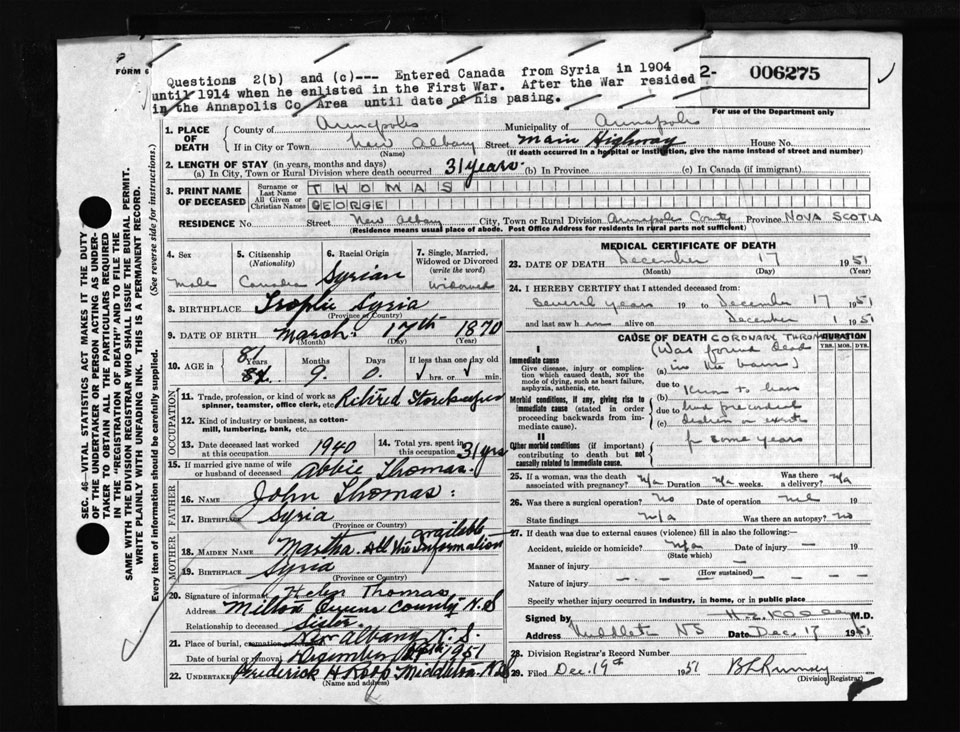 FORM 6
Questions 2(b) and (c)--- Entered Canada from Syria in 1904
until 1914 when he enlisted in the First War. After the War resided
in the Annapolis Co. Area until date of his pasing.
2- 006275
For use of the Department only
1. PLACE OF DEATH
County of Annapolis Municipality of Annapolis
If in City or Town New Albany Street Main Highway House No.
(Name) (If death occurred in a hospital or institution, give the name instead of street and number)
2. LENGTH OF STAY (in years, months and days)
(a) In City, Town or Rural Division where death occurred 31 years. (b) In Province (c) In Canada (if immigrant)
3. PRINT NAME OF DECEASED
Surname or Last Name THOMAS
All Given or Christian Names GEORGE
RESIDENCE No. Street New Albany City, Town or Rural Division Annapolis County Province NOVA SCOTIA
(Residence means usual place of abode. Post Office Address for residents in rural parts not sufficient)
4. Sex
Male
5. Citizenship (Nationality)
Canadian
6. Racial Origin
Syrian
7. Single, Married, Widowed or Divorced (write the word)
Widowed
8. BIRTHPLACE Syria
(Province or Country)
9. DATE OF BIRTH March 17th 1870
(Month) (Day) (Year)
10. AGE in 81
Years Months Days If less than one day old
9 0 hrs. or min.
OCCUPATION
11. Trade, profession, or kind of work as spinner, teamster, office clerk, etc. Retired Storekeeper
12. Kind of industry or business, as cotton-mill, lumbering, bank, etc.
13. Date deceased last worked at this occupation 1940
14. Total yrs. spent in this occupation 31 yrs
15. If married give name of wife or husband of deceased Abbie Thomas.
FATHER
16. NAME John Thomas:
17. BIRTHPLACE Syria
(Province or Country)
MOTHER
18. MAIDEN NAME Martha. All the Information available
19. BIRTHPLACE Syria
(Province or Country)
20. Signature of informant Helen Thomas
Address Milton Queens County N.S
Relationship to deceased Sister.
21. Place of burial, cremation New Albany N.S.
Date of burial or removal December 19th 1951
22. UNDERTAKER Frederick H Roop Middleton. N.S
(Name and address)
MEDICAL CERTIFICATE OF DEATH
23. DATE OF DEATH December 17 1951
(Month) (Day) (Year)
24. I HEREBY CERTIFY that I attended deceased from:
Several years 19 to December 17 1951
and last saw him alive on December 1 1951
CAUSE OF DEATH CORONARY DURATION
YRS. MOS. DYS.
I
Immediate cause
Give disease, injury or complication which caused death, not the mode of dying, such as heart failure, asphyxia, asthenia, etc.
(a) (Was found dead in the barn)
due to
Morbid conditions, if any, giving rise to immediate cause (stated in order proceeding backwards from immediate cause).
(b) Known to have
due to had precordial
(c) distress on
for some years
II
Other morbid conditions (if important) contributing to death but not causally related to immediate cause.
25. If a woman, was the death associated with pregnancy? n/a Duration n/a weeks. Was there a delivery? n/a
26. Was there a surgical operation? No Date of operation nil 19
State findings n/a Was there an autopsy? no
27. If death was due to external causes (violence) fill in also the following:
Accident, suicide or homicide? n/a Date of injury — 19
(State which)
Manner of injury —
(How sustained)
Nature of injury
Specify whether injury occurred in industry, in home, or in public place
Signed by M.D.
Address Middleton NS Date Dec. 17 1951
28. Division Registrar's Record Number
29. Filed Dec. 19th 1951
(Division Registrar)
SEC. 46—VITAL STATISTICS ACT MAKES IT THE DUTY
OF THE UNDERTAKER OR PERSON ACTING AS UNDER-
TAKER TO OBTAIN ALL THE PARTICULARS REQUIRED
IN THE "REGISTRATION OF DEATH" AND TO FILE THE
SAME WITH THE DIVISION REGISTRAR WHO SHALL ISSUE THE BURIAL PERMIT.
WRITE PLAINLY WITH UNFADING INK. THIS IS A PERMANENT RECORD.
Every item of information should be carefully supplied. (See reverse side for instructions.)